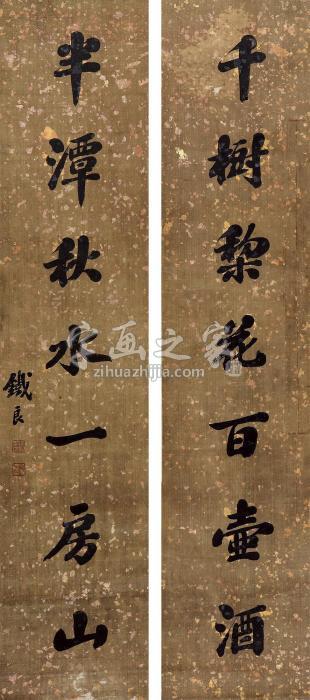 千樹黎花百壺酒
半潭秋水一房山
鐵良
字画之家
zihuazhijia.com